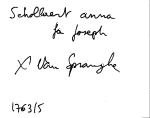 Schollaert anna
fa Joseph
X Van Spranghe
1763/5